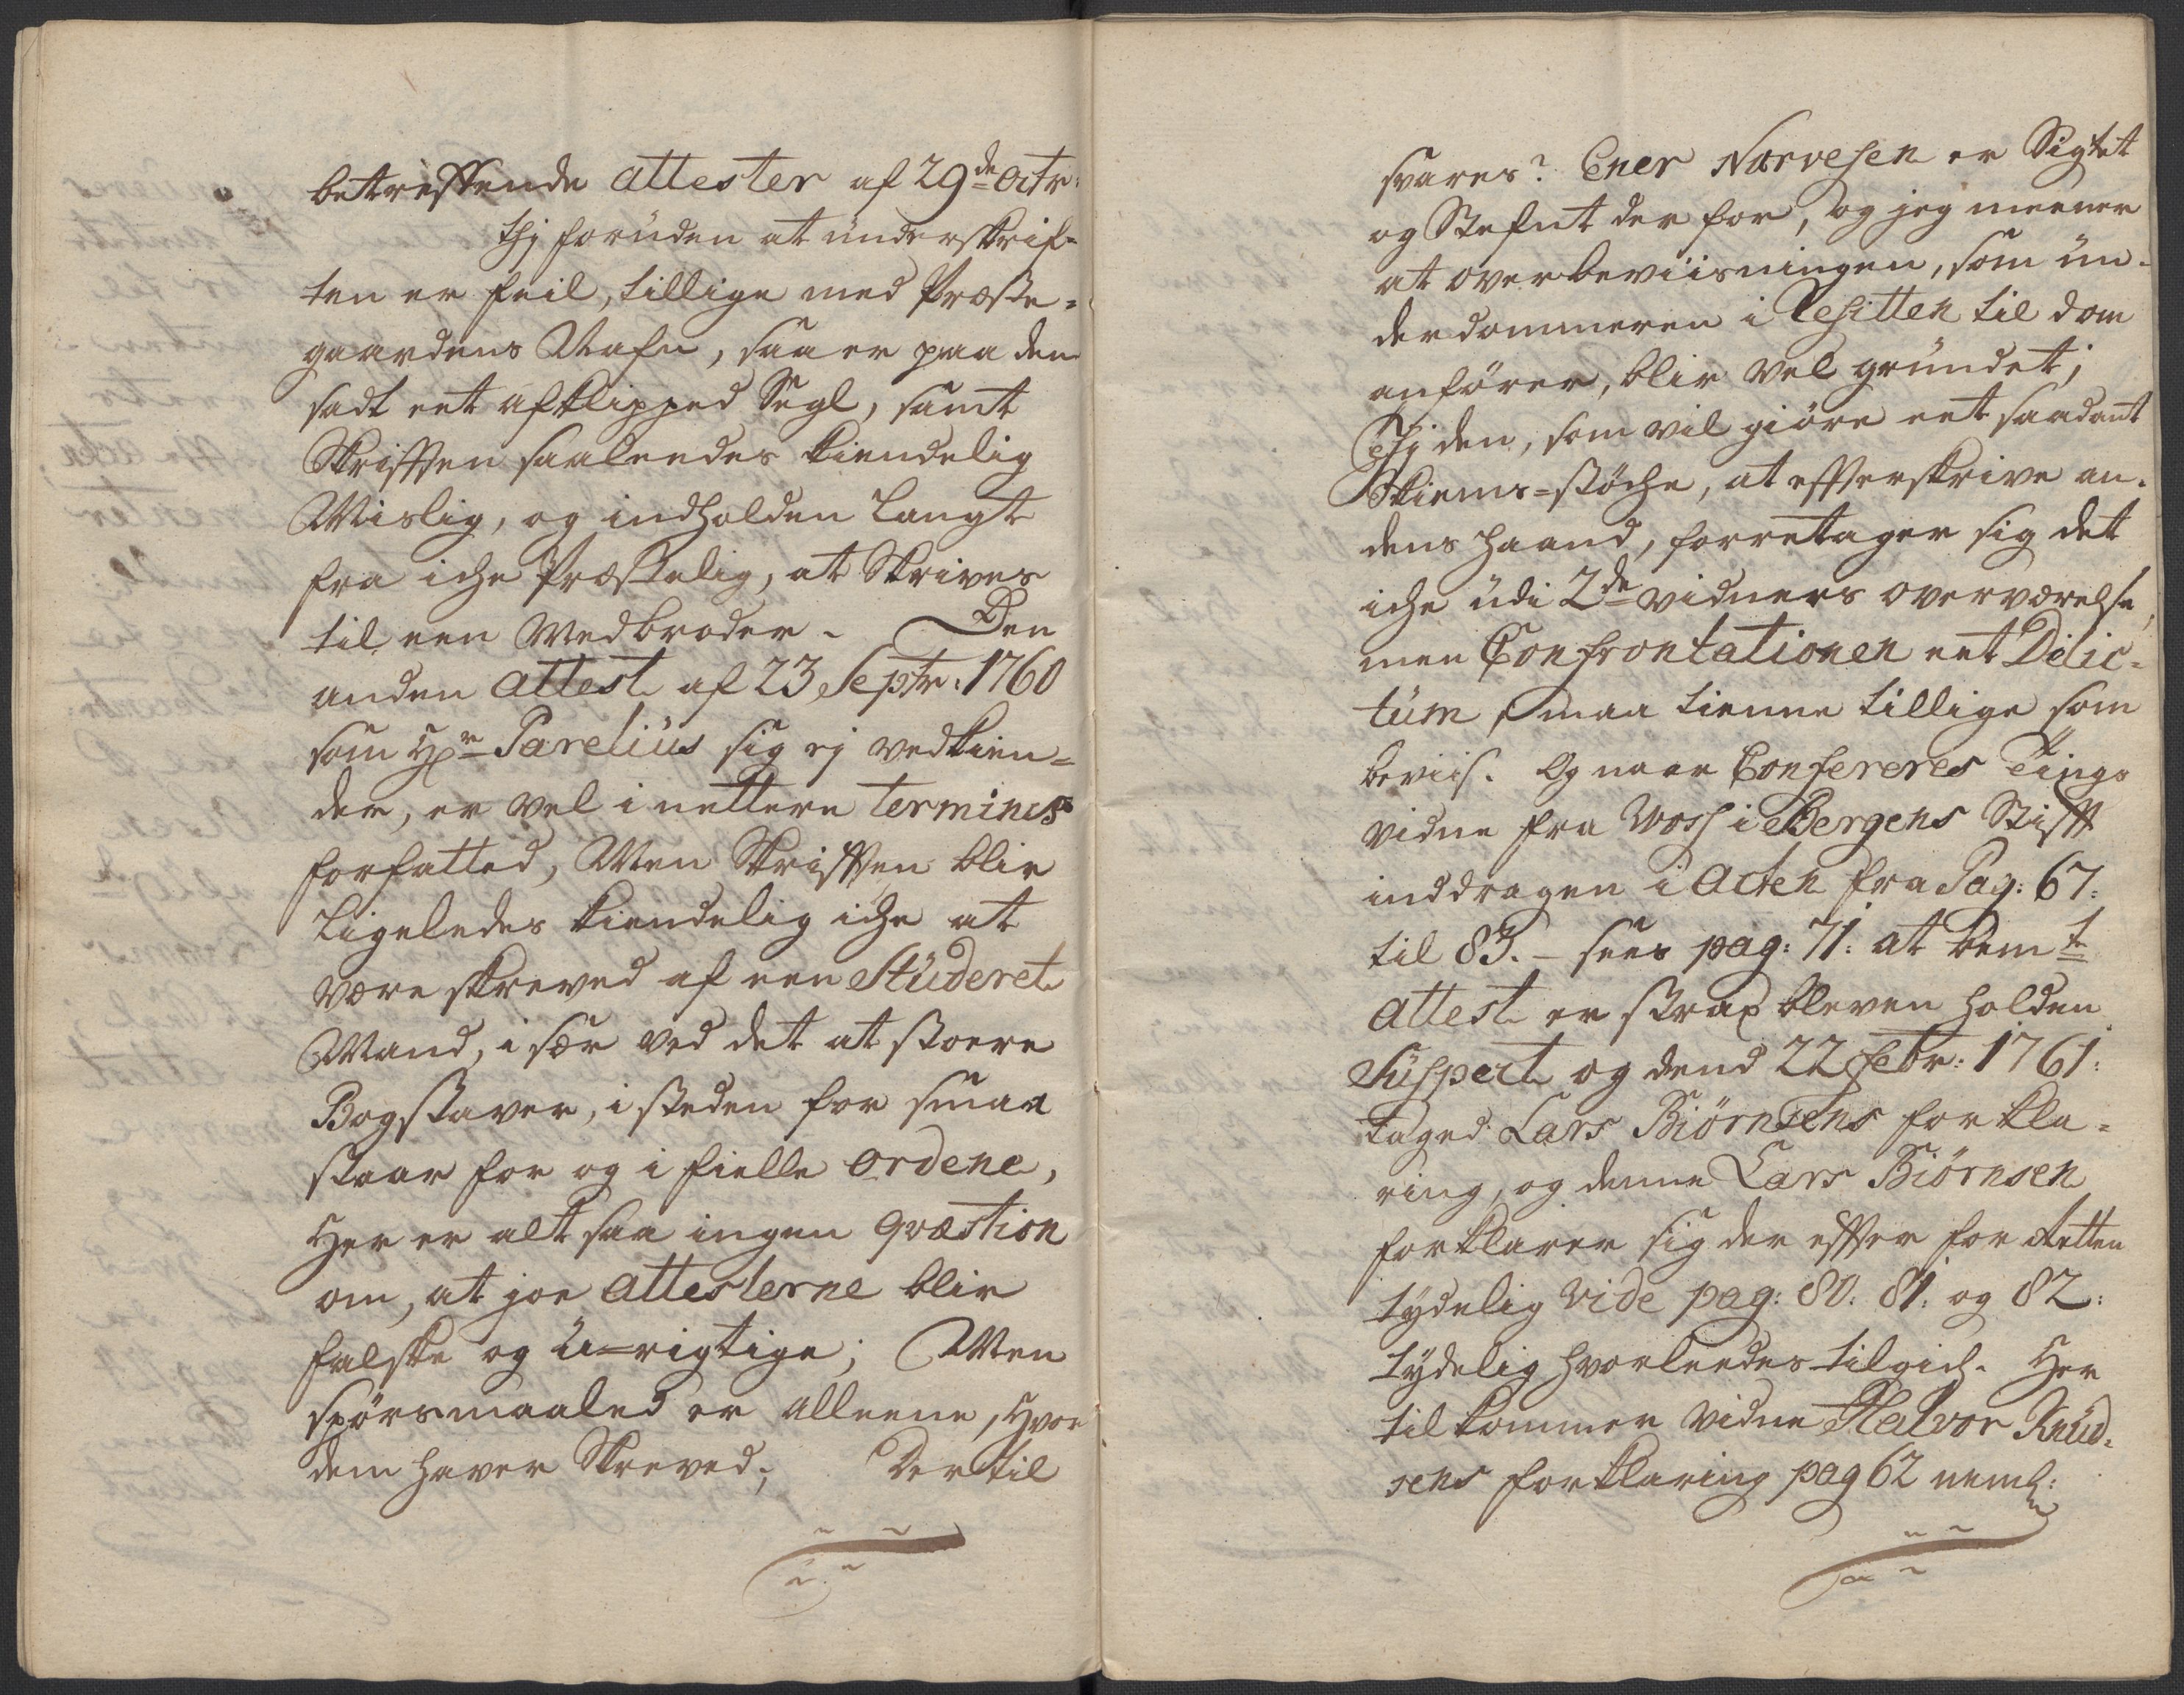 betreffende attester af 29de octr:
thj foruden at underskrif=
ten er feil, tillige med Præste=
gaardens Nafn, saa er paa den
sadt eet afklipped Segl, samt
Skriften saaleedes kiendelig
Mislig, og indholden Langt
fra iche Præstelig, at Skrives
til een Medbroder. Den
anden attest af 23 Septr: 1760
som Hr Parelius sig ej vedkien=
der, er vel i nettere terminis
forfatted, Men Skriften blir
Ligeledes kiendelig iche at
være skreved af een Studeret
Mand, i sær ved det at stoere
Bogstaver, i steden for smaa
staar for og i fielle ordene,
Her er alt saa ingen qvæstion
om, at joe attesterne blir
falske og u=rigtige; Men
spörsmaaled er alleene, Hvor
dem haver Skreved; Dertil
svares? Ener Narvesen er Sigtet
og Stefnt der for, og jeg meener
at overbeviisningen, som un=
derdommeren i Resitten til dom
anförer, blir vel grundet;
Thj den, som vil giöre eet saadant
Skiems=stöche, at efterskrive an=
dens Haand, forretager sig det
iche udi 2de vidners overværelse,
men Confrontationen eet Delic=
tum, maa tienne tillige som
beviis. Og naar Confereres Tings
vidne fra Woss i Bergens Stift
inddragen i Acten fra Pag: 67:
til 83. - sees pag: 71: at bemte
attest er strax bleven holden
Suspect og dend 22 Febr: 1761:
taged Lars Biörnsens forkla=
ring, og denne Lars Biörnsen
forklarer sig der efter for Retten
tydelig vide pag: 80. 81: og 82:
tydelig hvorleedes tilgich. Her
til kommer vidne Halvor Knud=
sens forklaring pag 62 neml: